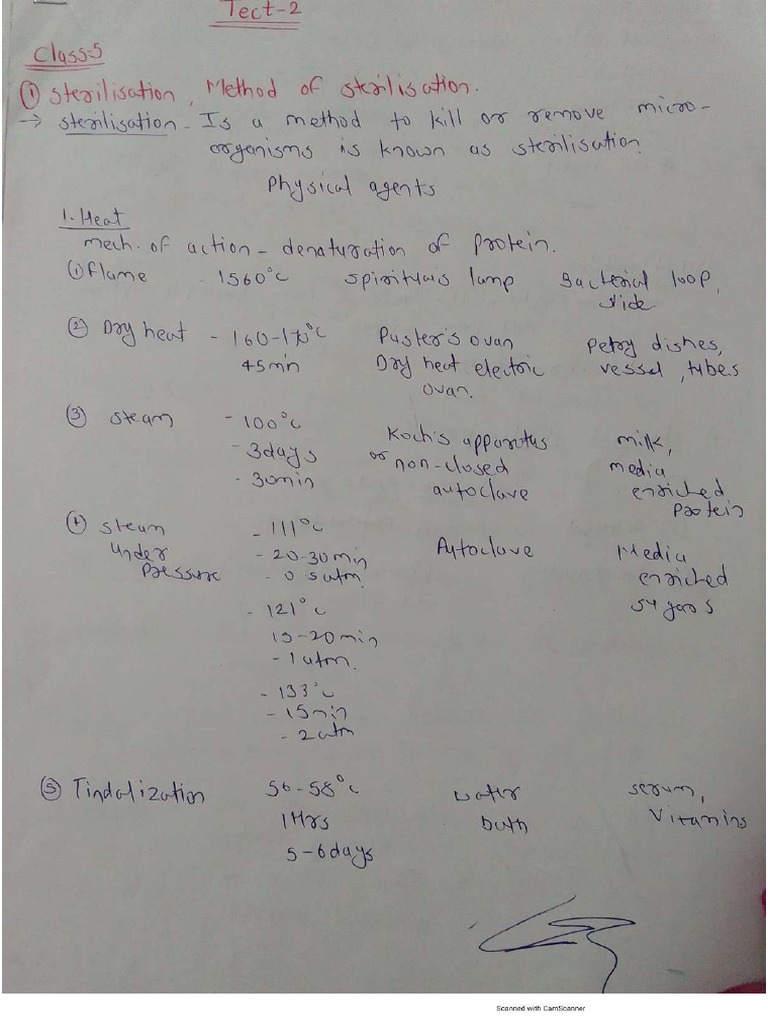 Tect-2
Class-5
① Sterilisation, Method of sterilisation.
→ sterilisation - Is a method to kill or remove micro-
organisms is known as sterilisation.
Physical agents
1. Heat
mech. of action - denaturation of protein.
① flame - 1560°C spirituals lamp Bacterial loop,
slide.
② Dry heat - 160-170°C Paster's ovan Petry dishes,
45min Dry heat electric vessel, tubes
ovan.
③ steam - 100°C Koch's apparatus milk,
- 3days or non-closed media
- 30min autoclave enriched
protein
④ steam - 111°C Autoclave Media
under - 20-30min enriched
pressure - 0.5 atm.
- 121°C
15-20min
- 1 atm.
- 133°C
- 15min
- 2 atm
⑤ Tindalization 56-58°C water serum,
1Hrs bath Vitamins
5-6days
Scanned with CamScanner